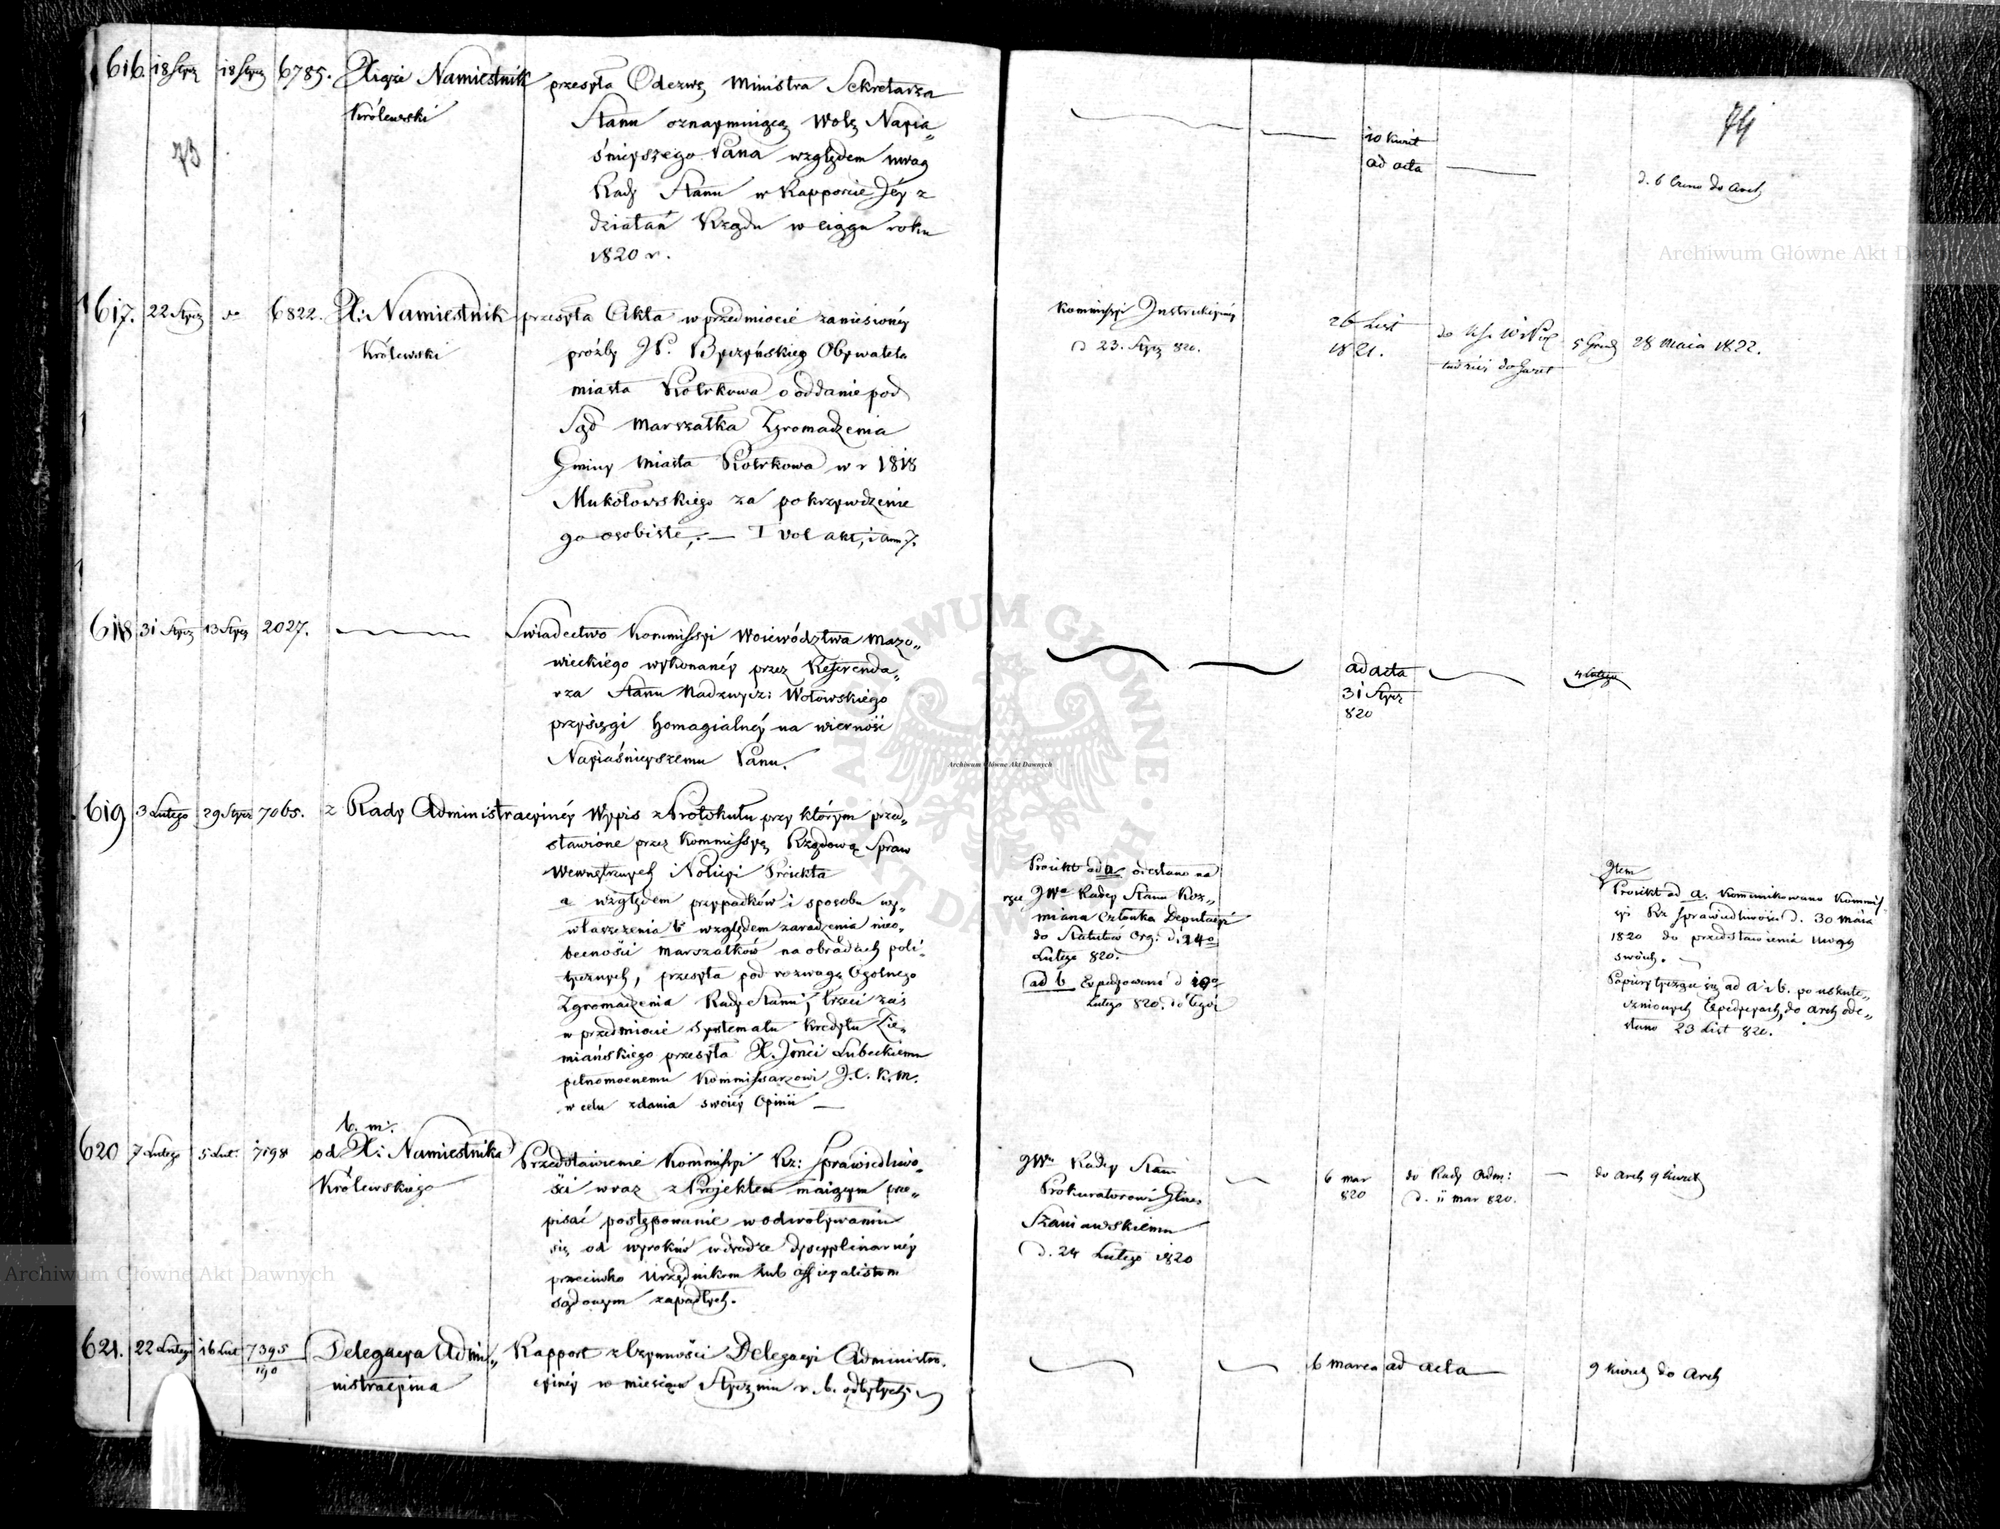 616. 18 Stycz 18 Stycz 6785. Xiąże Namiestnik przesyła Odezwę Ministra Sekretarza
Królewski
Stanu oznaymuiącą Wolę Nayia„
śnieyszego Pana względem uwag
Rady Stanu w Rapporcie Jéy z
działań Rządu w ciągu roku
1820 r.
73
10 Kwiet
ad acta
74
617. 22 Stycz do 6822. X: Namiestnik przesyła Akta w przedmiocie zaniesionéy
Królewski
proźby JP. Byczyńskieg Obywatela
miasta Piotrkowa o oddanie pod
Sąd Marszałka Zgromadzenia
Gminy Miasta Piotrkowa w r 1818
Mukołowskiego za pokrzywdzenie
go osobiste, — I vol akt,
Kommissyi Instrukcyinéy
d 23. Stycz 820.
26 List
1821.
28 Maia 1822.
618 31 Stycz 13 Stycz 2027.
Swiadectwo Kommissyi Woiewództwa Mazo„
wieckiego wykonanéy przez Referenda„
rza Stanu Nadzwycz: Wołowskiego
przysięgi homagialnéy na wierność
Nayiaśnieyszemu Panu.
ad acta
31 Stycz
820
4 Lutego
619 3 Lutego 29 Stycz 7065. z Rady Administracyinéy Wypis z Protokułu przy którym przed„
stawione przez Kommissyą Rządową Spraw
Wewnętrznych i Policyi Proiekta
a względem przypadków i sposobu wy„
właszczenia b względem zaradzenia nieo„
becności Marszałków na obradach poli„
tycznych, przesyła pod rozwagę Ogólnego
Zgromadzenia Rady Stanu, trzeci zaś
w przedmiocie systematu Kredytu Zie„
miańskiego przesyła X. Jmci Lubeckiemu
pełnomocnemu Kommissarzowi J. C. K. M.
w celu zdania swoiéy Opinii —
Proiekt ad a odesłano na
ręce JWo Radcy Stanu Koz„
miana Członka Deputacyi
do Statutów Org: d. 14o
Lutego 820.
ad b Expedyowano d 19o
Lutego 820.
Item
Proiekt ad a. Kommunikowano Kommis
syi Rz Sprawiedliwości d. 30 Maia
1820 do przedstawienia Uwag
swoich.
Papiery tyczące się ad a i b. po uskute„
cznionych Expedycyach, do Arch ode„
słano 23 List 820.
b. m.
620 7 Lutego 5 Lut. 7198 od X: Namiestnika Przedstawienie Kommissyi Rz: Sprawiedliwo„
Królewskiego
ści wraz z Projektem maiącym prze„
pisać postępowanie w odwoływaniu
się od wyroków w drodze dyscyplinarnéy
przeciwko Urzędnikom lub Officyalistom
sądowym zapadłych.
JWu Radcy Stanu
Prokuratorowi Glnmu
Szaniawskiemu
d. 24 Lutego 1820
6 mar
820
do Rady Adm:
d. 11 mar 820.
do Arch 9 Kwiet
621. 22 Lutego 16 Lut 7395 Delegacya Admi„ Rapport z Czynności Delegacyi Administra„
190
nistracyina
cyinéy w miesiącu Styczniu r. b. odbytych.
6 marca ad acta
9 Kwiet do Arch
Archiwum Główne Akt Dawnych
Archiwum Główne Akt Dawnych
Archiwum Główne Akt Dawnych